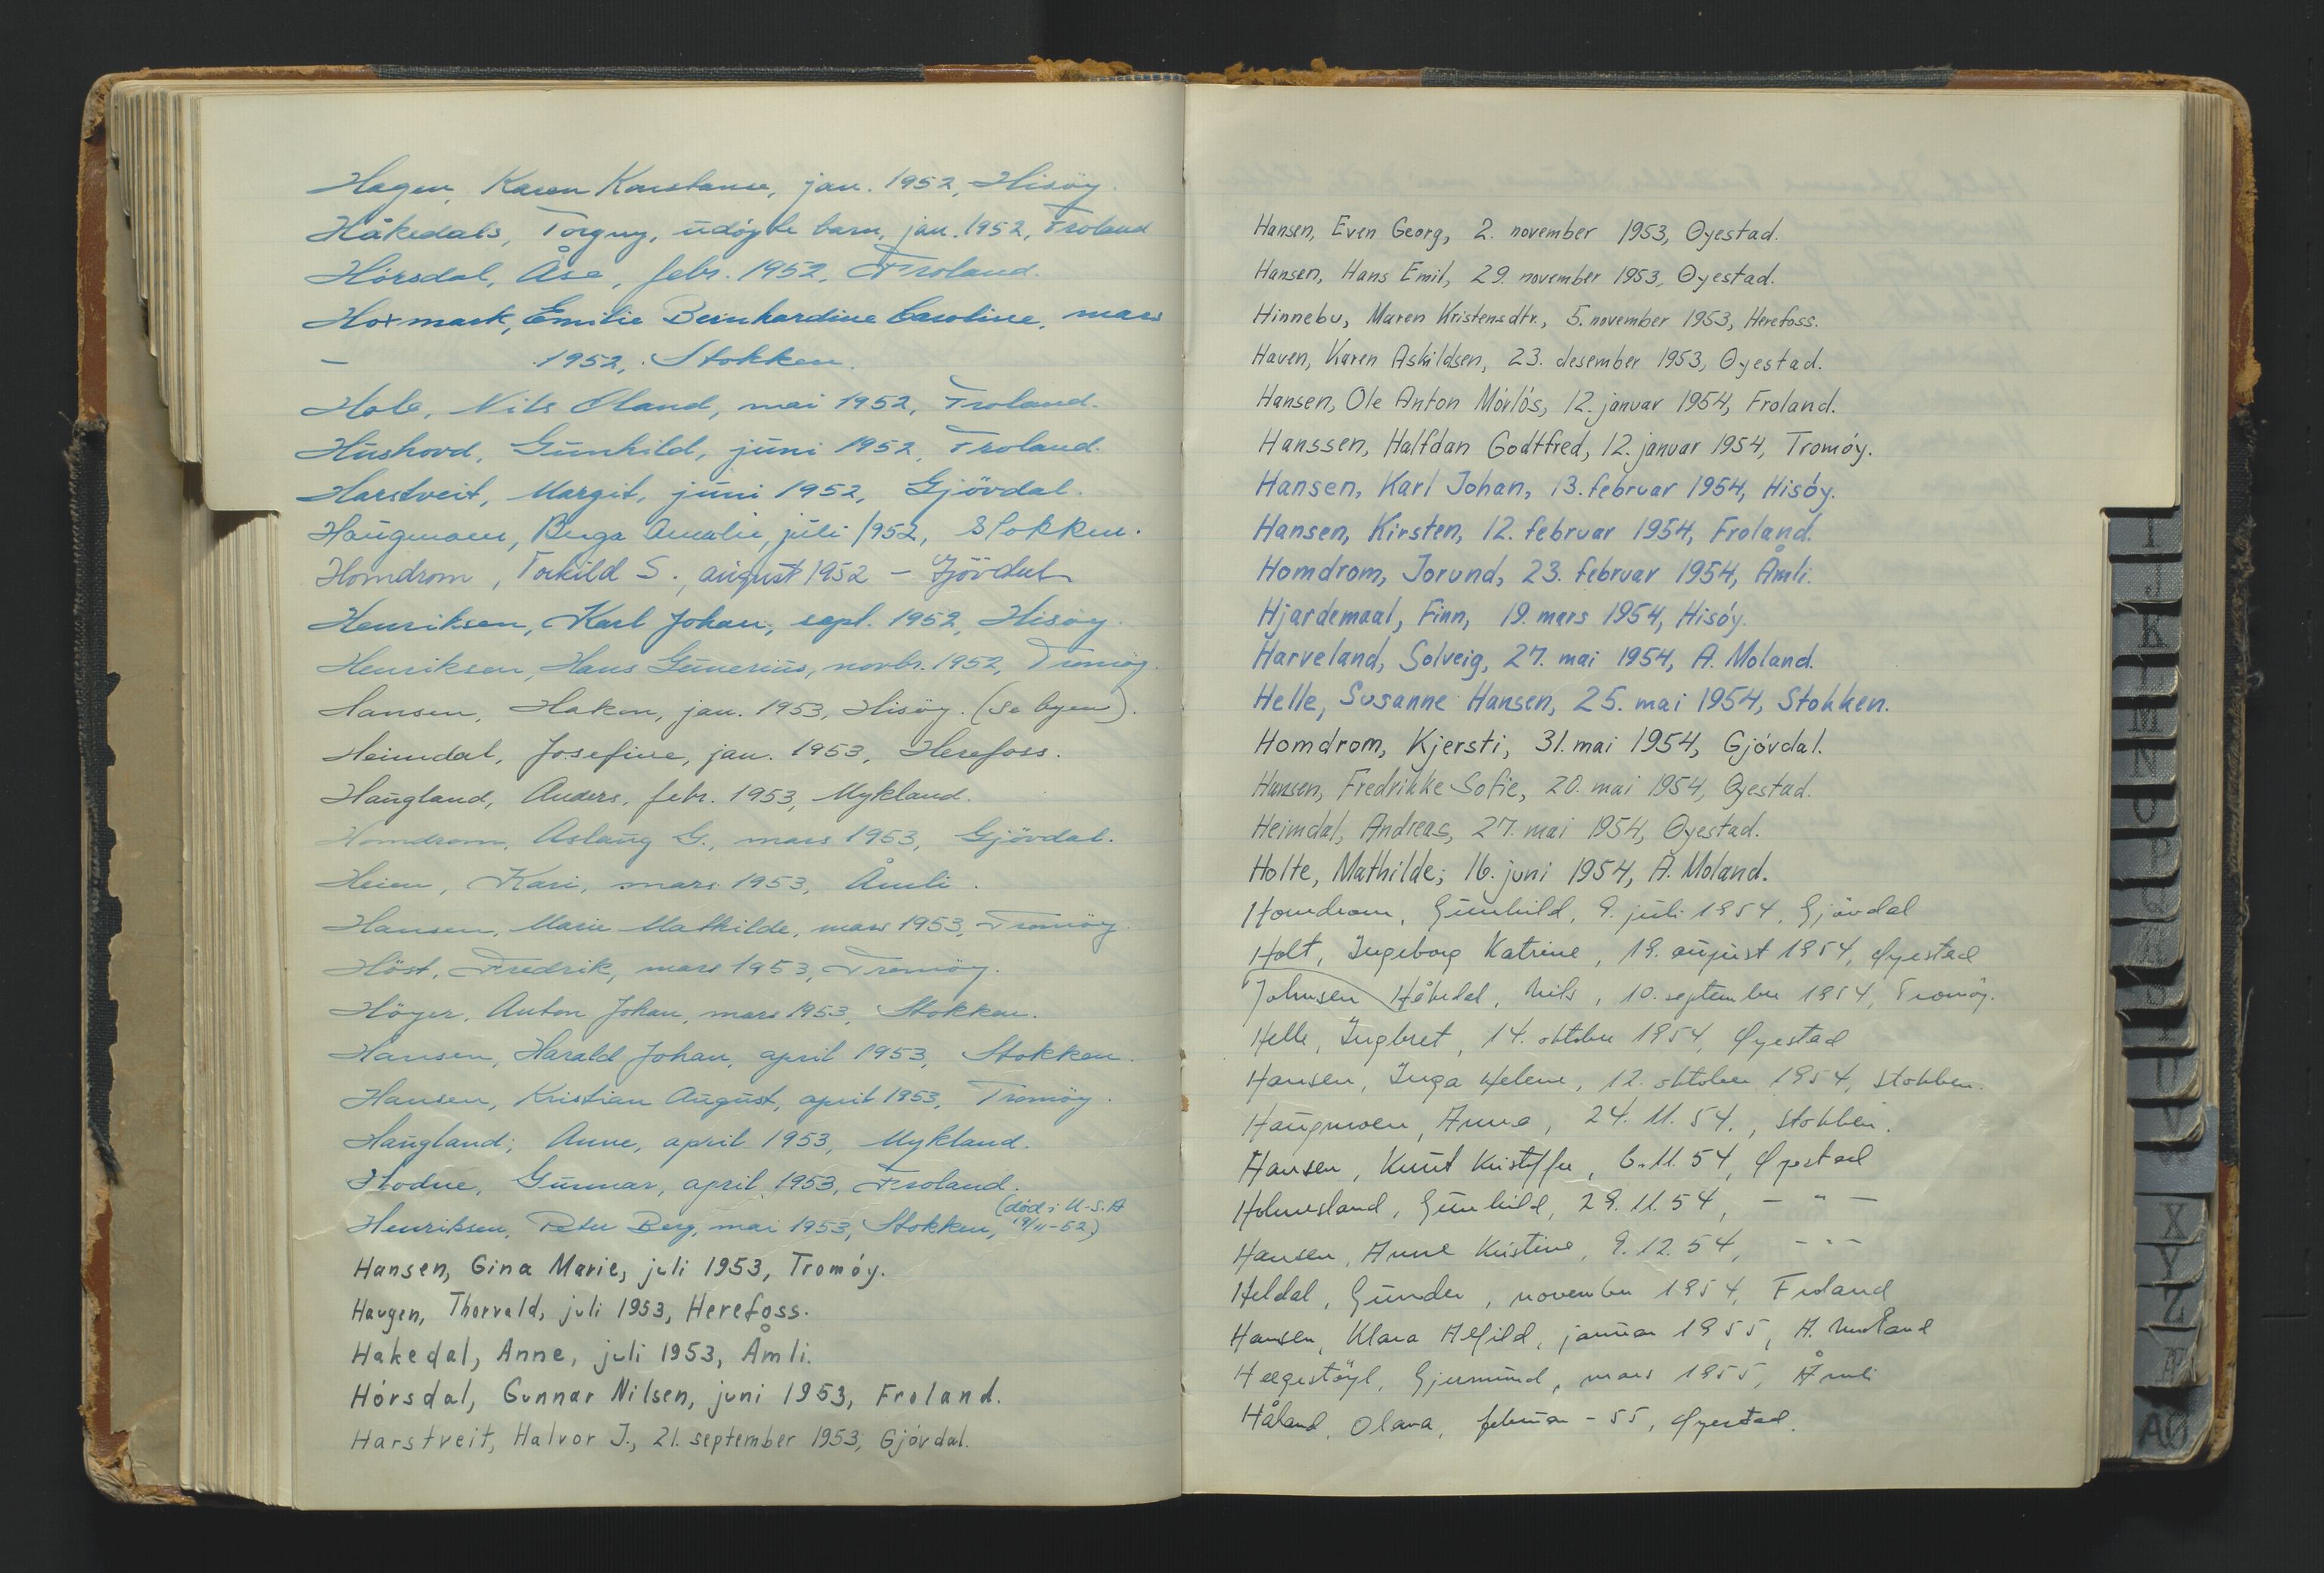 Hagen, Karen Konstanse, jan. 1952, Hisöy.
Håkedals, Torguy, udöpte barn, jan. 1952, Froland
Hörsdal, Åse, febr. 1952, Froland.
Hoxmark, Emilie Bernhardine Caroline, mars
– 1952, Stokken.
Hole, Nils Oland, mai 1952, Froland.
Hushovd, Gunhild, juni 1952, Froland.
Harstveit, Margit, juni 1952, Gjövdal.
Haugmoen, Berga Amalie, juli 1952, Stokken.
Homdrom, Torkild S., august 1952 – Gjövdal
Henriksen, Karl Johan, sept. 1952, Hisöy.
Henriksen, Hans Gunerius, novbr. 1952, Tromöy.
Hansen, Hakon, jan. 1953, Hisöy. (Se byen).
Heimdal, Josefine, jan. 1953, Herefoss.
Haugland, Anders, febr. 1953, Mykland.
Homdrom, Aslaug G., mars 1953, Gjövdal.
Heien, Kari, mars 1953, Åmli.
Hansen, Marie Mathilde, mars 1953, Tromöy.
Höst, Fredrik, mars 1953, Tromöy.
Höyer, Anton Johan, mars 1953, Stokken.
Hansen, Harald Johan, april 1953, Stokken.
Hansen, Kristian August, april 1953, Tromöy.
Haugland, Anne, april 1953, Mykland.
Hodne, Gunnar, april 1953, Froland.
(död i U.S.A
Henriksen, Peter Berg, mai 1953, Stokken, 19/11-52)
Hansen, Gina Marie, juli 1953, Tromöy.
Haugen, Thorvald, juli 1953, Herefoss.
Hakedal, Anne, juli 1953, Åmli.
Hörsdal, Gunnar Nilsen, juni 1953, Froland.
Harstveit, Halvor J., 21. september 1953, Gjövdal.
Hansen, Even Georg, 2. november 1953, Øyestad.
Hansen, Hans Emil, 29. november 1953, Øyestad.
Hinnebu, Maren Kristensdtr., 5. november 1953, Herefoss.
Haven, Karen Askildsen, 23. desember 1953, Øyestad.
Hansen, Ole Anton Mörlös, 12. januar 1954, Froland.
Hanssen, Halfdan Godtfred, 12. januar 1954, Tromöy.
Hansen, Karl Johan, 13. februar 1954, Hisöy.
Hansen, Kirsten, 12. februar 1954, Froland.
Homdrom, Jorund, 23. februar 1954, Åmli.
Hjardemaal, Finn, 19. mars 1954, Hisöy.
Harveland, Solveig, 27. mai 1954, A. Moland.
Helle, Susanne Hansen, 25. mai 1954, Stokken.
Homdrom, Kjersti, 31. mai 1954, Gjövdal.
Hansen, Fredrikke Sofie, 20. mai 1954, Øyestad.
Heimdal, Andreas, 27. mai 1954, Øyestad.
Holte, Mathilde, 16. juni 1954, A. Moland.
Homdrom, Gunhild, 9. juli 1954, Gjövdal
Holt, Ingeborg Katrine, 19. august 1954, Øyestad
Johnsen Håkedal, Nils, 10. september 1954, Tromöy.
Helle, Ingbret, 14. oktober 1954, Øyestad
Hansen, Inga Helene, 12. oktober 1954, Stokken.
Haugmoen, Anna, 24.11.54., Stokken.
Hansen, Knut Kristoffer, 6.11.54, Øyestad
Holmesland, Gunhild, 29.11.54, – " –
Hansen, Anne Kristine, 9.12.54, – " –
Heldal, Gunder, november 1954, Froland
Hansen, Klara Alfild, januar 1955, A. Moland
Helgestöyl, Gjermund, mars 1955, Åmli
Håland, Olava, februar -55, Øyestad.
I
J
K
L
M
N
O
P
Q
R
S
T
U
V
W
X
Y
Z
Æ
AØ